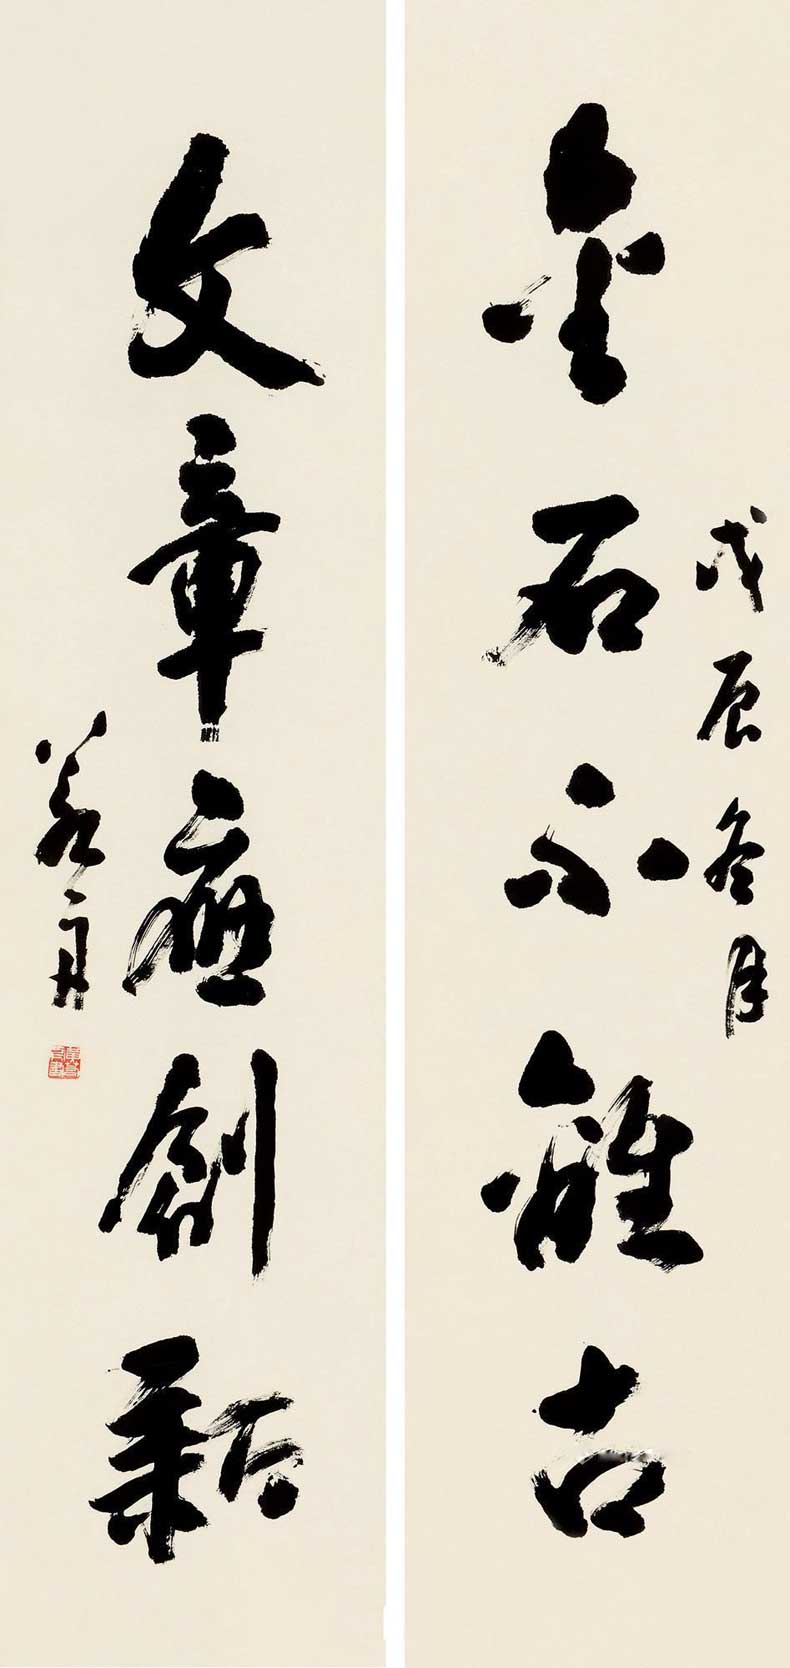 戊辰冬月
金石不離古
文章應創新